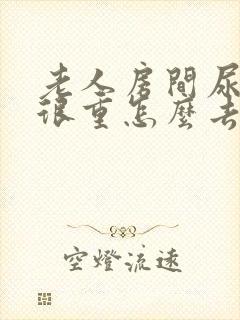 老人房間尿
很重怎麼去
空燈流遠